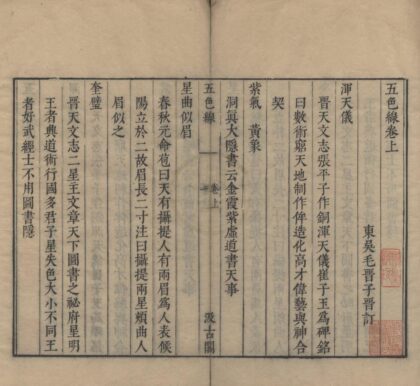 五色線卷上
東吳毛晉子晉訂
渾天儀
晉天文志張平子作銅渾天儀崔子玉為碑銘
曰數術窮天地制作侔造化高才偉藝與神合
契
紫氣 黃象
洞眞大隱書云金霞紫虛道書天事
五色線
卷上
汲古閣
星曲似眉
春秋元命苞曰天有攝提人有兩眉為人表候
陽立於二故眉長二寸注曰攝提兩星頰曲人
眉似之
奎璧
晉天文志二星王文章天下圖書之祕府星明
王者典道術行國多君子星失色大小不同王
者好武經士不用圖書隱